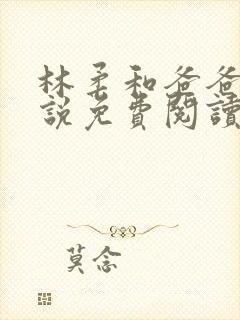 林柔和爸爸
說免費閱讀
莫念